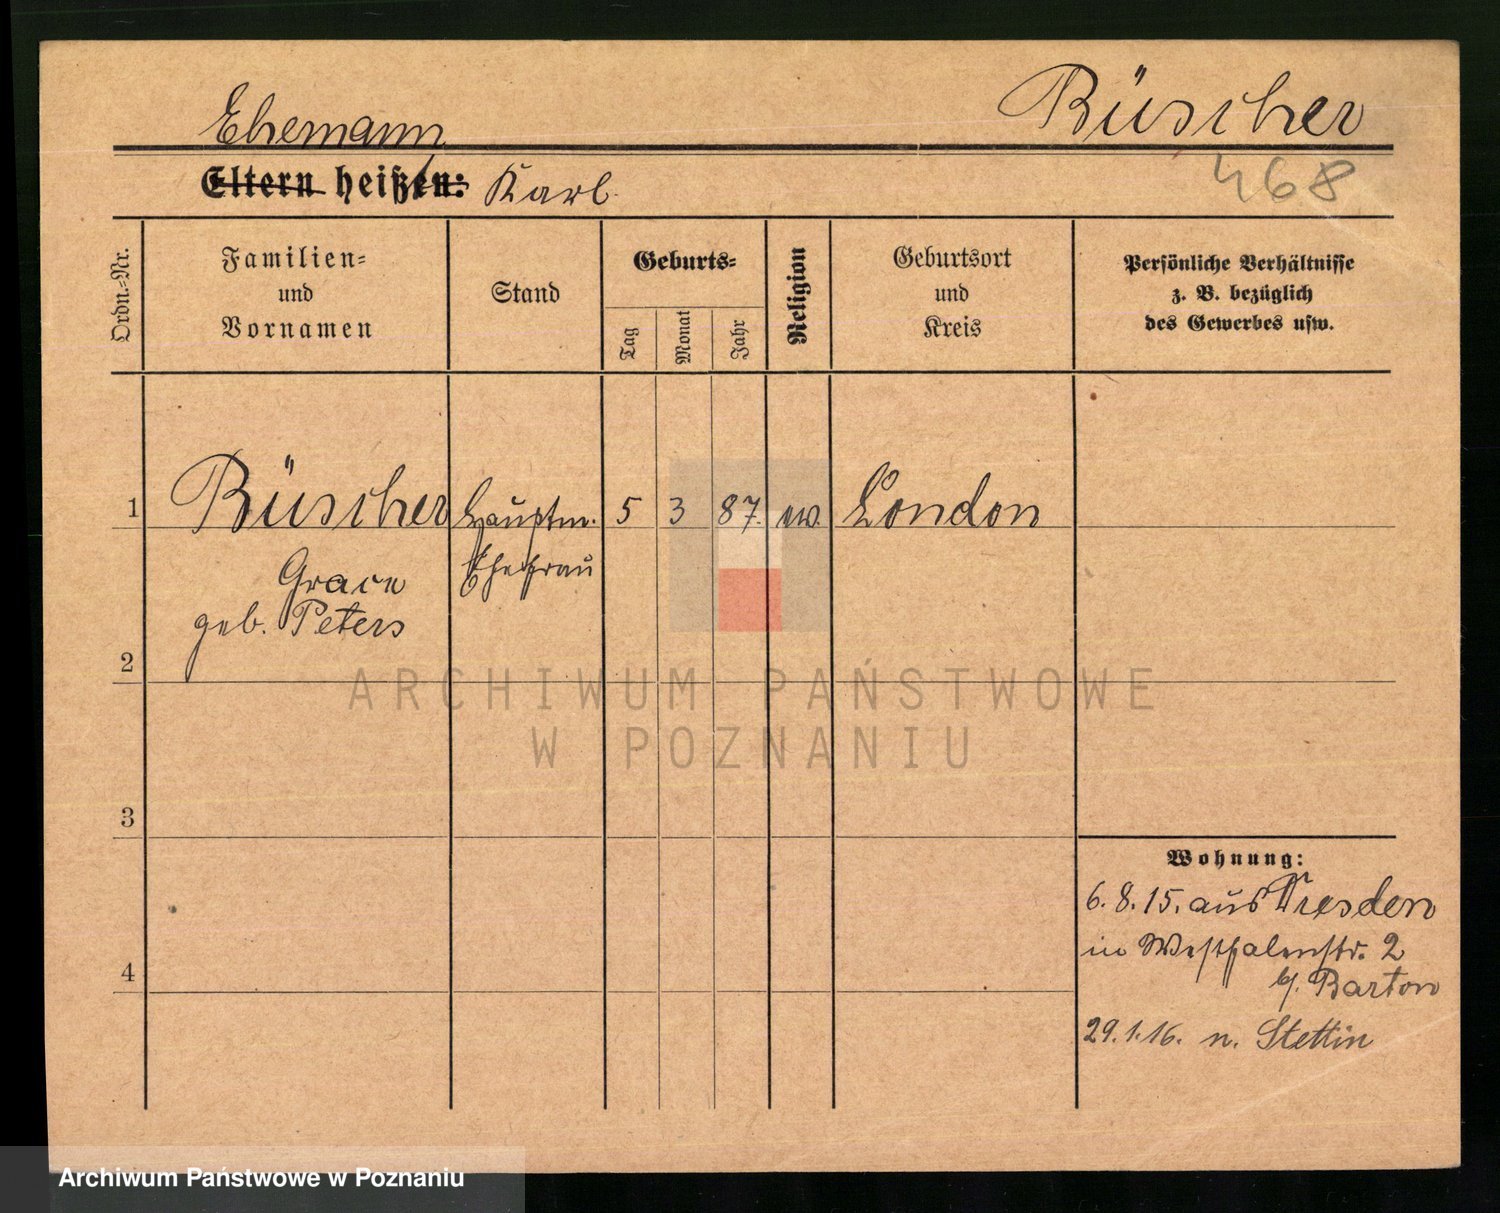 Ehemann
Büscher
Eltern heißen: Karl
468
Ordn.-Nr.
Familien-
und
Vornamen
Stand
Geburts-
Tag
Monat
Jahr
Religion
Geburtsort
und
Kreis
Persönliche Verhältnisse
z. B. bezüglich
des Gewerbes usw.
1 Büscher Hauptm. 5 3 87. ew. London
Grace Ehefrau
geb. Peters
2
ARCHIWUM PAŃSTWOWE
W POZNANIU
3
Wohnung:
6. 8. 15. aus Dresden
in Westfalenstr. 2
b/. Barton
4
29. 1. 16. n. Stettin
Archiwum Państwowe w Poznaniu